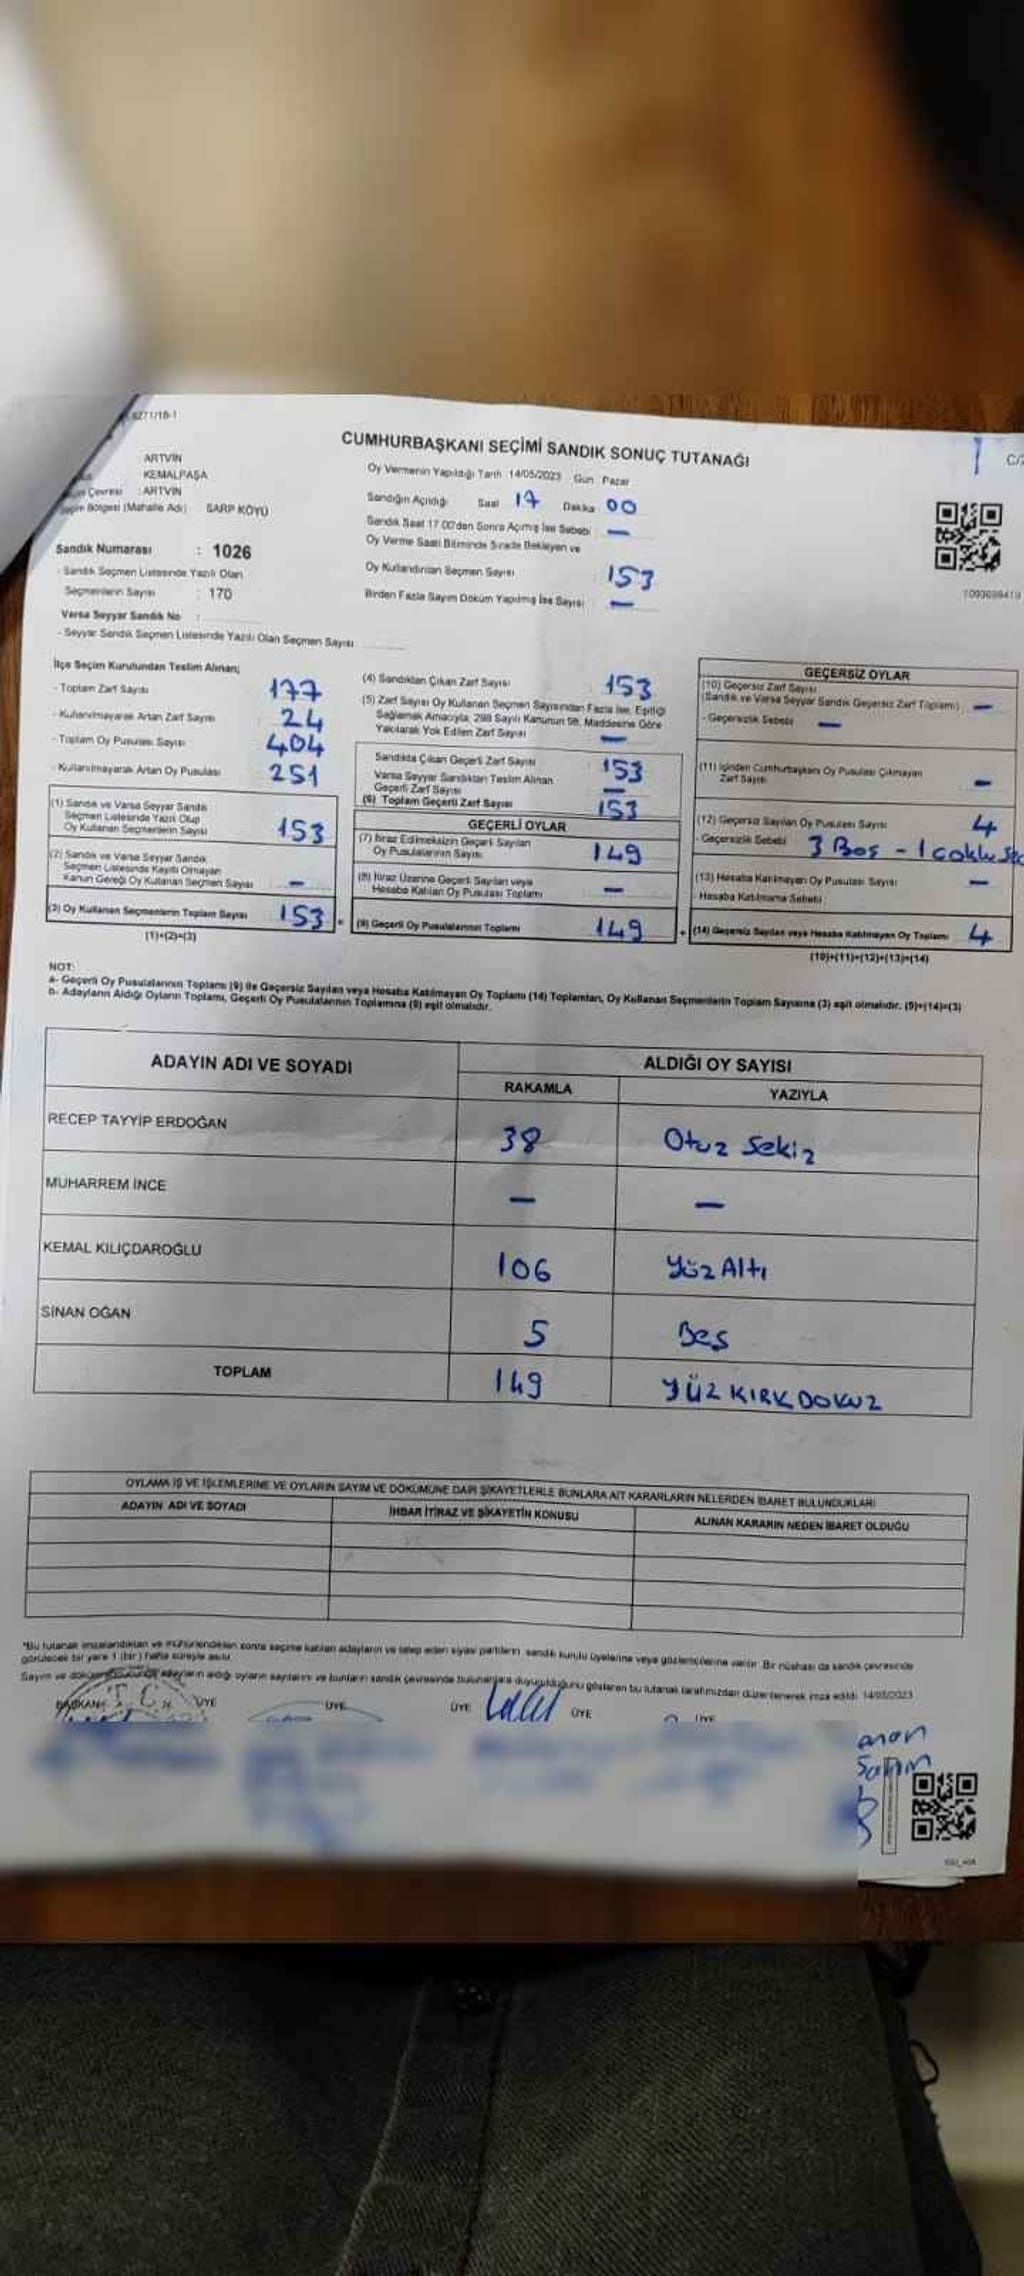 6271/18-1
CUMHURBAŞKANI SEÇİMİ SANDIK SONUÇ TUTANAĞI
ARTVİN
KEMALPAŞA
Çevresi : ARTVİN
Bölgesi (Mahalle Adı) SARP KÖYÜ
Oy Vermenin Yapıldığı Tarih 14/05/2023 Gün Pazar
Sandığın Açıldığı Saat 17 Dakika 00
Sandık Saat 17.00'den Sonra Açılmış İse Sebebi —
Oy Verme Saati Bitiminde Sırada Bekleyen ve
Oy Kullandırılan Seçmen Sayısı 153
Birden Fazla Sayım Döküm Yapılmış İse Sayısı —
Sandık Numarası : 1026
- Sandık Seçmen Listesinde Yazılı Olan
Seçmenlerin Sayısı : 170
Varsa Seyyar Sandık No :
- Seyyar Sandık Seçmen Listesinde Yazılı Olan Seçmen Sayısı
İlçe Seçim Kurulundan Teslim Alınan;
- Toplam Zarf Sayısı 177
- Kullanılmayarak Artan Zarf Sayısı 24
- Toplam Oy Pusulası Sayısı 404
- Kullanılmayarak Artan Oy Pusulası 251
(1) Sandık ve Varsa Seyyar Sandık
Seçmen Listesinde Yazılı Olup
Oy Kullanan Seçmenlerin Sayısı 153
(2) Sandık ve Varsa Seyyar Sandık
Seçmen Listesinde Kayıtlı Olmayan
Kanun Gereği Oy Kullanan Seçmen Sayısı —
(3) Oy Kullanan Seçmenlerin Toplam Sayısı 153
(1)+(2)=(3)
(4) Sandıktan Çıkan Zarf Sayısı 153
(5) Zarf Sayısı Oy Kullanan Seçmen Sayısından Fazla İse, Eşitliği
Sağlamak Amacıyla, 298 Sayılı Kanunun 98. Maddesine Göre
Yakılarak Yok Edilen Zarf Sayısı —
Sandıkta Çıkan Geçerli Zarf Sayısı 153
Varsa Seyyar Sandıktan Teslim Alınan
Geçerli Zarf Sayısı —
(6) Toplam Geçerli Zarf Sayısı 153
GEÇERLİ OYLAR
(7) İtiraz Edilmeksizin Geçerli Sayılan
Oy Pusulalarının Sayısı 149
(8) İtiraz Üzerine Geçerli Sayılan veya
Hesaba Katılan Oy Pusulası Toplamı —
(9) Geçerli Oy Pusulalarının Toplamı 149
GEÇERSİZ OYLAR
(10) Geçersiz Zarf Sayısı
(Sandık ve Varsa Seyyar Sandık Geçersiz Zarf Toplamı) —
- Geçersizlik Sebebi —
(11) İçinden Cumhurbaşkanı Oy Pusulası Çıkmayan
Zarf Sayısı —
(12) Geçersiz Sayılan Oy Pusulası Sayısı 4
- Geçersizlik Sebebi 3 Boş - 1 çoklu
(13) Hesaba Katılmayan Oy Pusulası Sayısı —
- Hesaba Katılmama Sebebi
(14) Geçersiz Sayılan veya Hesaba Katılmayan Oy Toplamı 4
(10)+(11)+(12)+(13)=(14)
NOT:
a- Geçerli Oy Pusulalarının Toplamı (9) ile Geçersiz Sayılan veya Hesaba Katılmayan Oy Toplamı (14) Toplamları, Oy Kullanan Seçmenlerin Toplam Sayısına (3) eşit olmalıdır. (9)+(14)=(3)
b- Adayların Aldığı Oyların Toplamı, Geçerli Oy Pusulalarının Toplamına (9) eşit olmalıdır.
ADAYIN ADI VE SOYADI ALDIĞI OY SAYISI
RAKAMLA YAZIYLA
RECEP TAYYİP ERDOĞAN 38 Otuz Sekiz
MUHARREM İNCE — —
KEMAL KILIÇDAROĞLU 106 Yüz Altı
SİNAN OĞAN 5 Beş
TOPLAM 149 YÜZ KIRK DOKUZ
OYLAMA İŞ VE İŞLEMLERİNE VE OYLARIN SAYIM VE DÖKÜMÜNE DAİR ŞİKAYETLERLE BUNLARA AİT KARARLARIN NELERDEN İBARET BULUNDUKLARI
ADAYIN ADI VE SOYADI İHBAR İTİRAZ VE ŞİKAYETİN KONUSU ALINAN KARARIN NEDEN İBARET OLDUĞU
*Bu tutanak imzalandıktan ve mühürlendikten sonra seçime katılan adayların ve talep eden siyasi partilerin sandık kurulu üyelerine veya gözlemcilerine verilir. Bir nüshası da sandık çevresinde
görülecek bir yere 1 (bir) hafta süreyle asılır.
Sayım ve döküm adayların aldığı oyların sayılarını ve bunların sandık çevresinde bulunanlara duyurulduğunu gösteren bu tutanak tarafımızdan düzenlenerek imza edildi. 14/05/2023
BAŞKAN ÜYE ÜYE ÜYE ÜYE ÜYE